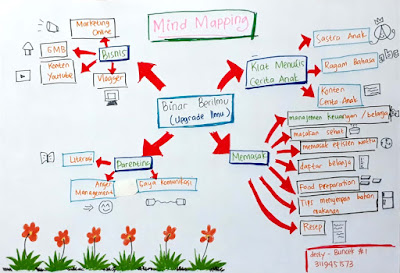 Mind Mapping
Marketing
Online
GMB
Bisnis
Konten
Youtube
Vlogger
Sastra Anak
Kiat Menulis
Cerita Anak
Ragam Bahasa
Konten
Cerita Anak
Binar Berilmu
(Upgrade Ilmu)
manajemen keuangan / belanja
masakan sehat
memasak efisien waktu
Memasak
daptar belanja
Food preparation
Tips menyimpan bahan
makanan
Resep
Literasi
Parenting
Anger
Management
Gaya Komunikasi